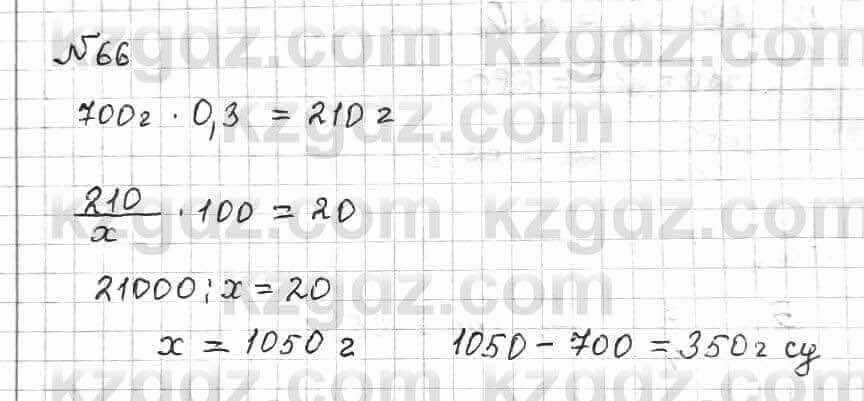 №66
700г · 0,3 = 210 г
210/x · 100 = 20
21000 : x = 20
x = 1050 г 1050 - 700 = 350г су
kzgaz.com kzgaz.com
kzgaz.com kzgaz.com
kzgaz.com kzgaz.com
kzgaz.com kzgaz.com
kzgaz.com kzgaz.com